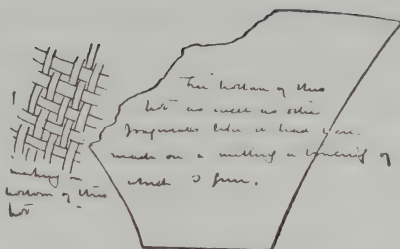 The bottom of this
pot as well as other
fragments like it had been
made on a matting a tracing of
which I give.
making on
bottom of this
pot